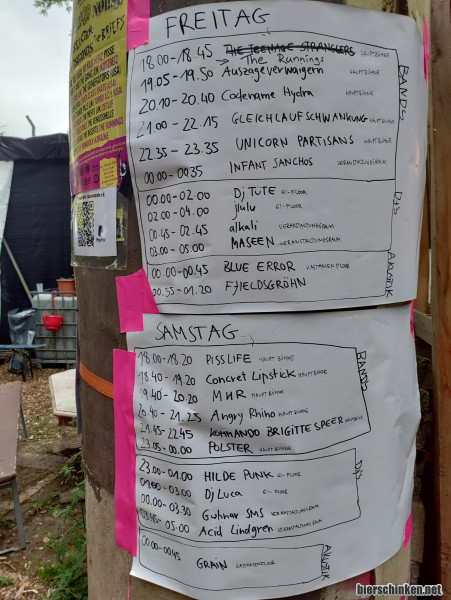 FREITAG
18.00-18.45 THE TEENAGE STRANGLERS HAUPTBÜHNE
→ The Runnings
19.05-19.50 Aussageverweigern HAUPTBÜHNE
20.10-20.40 Codename Hydra HAUPTBÜHNE
21.00-22.15 GLEICHLAUFSCHWANKUNG HAUPTBÜHNE
22.35-23.35 UNICORN PARTISANS HAUPTBÜHNE
00.00-00.35 INFANT SANCHOS VERANSTALTUNGSRAUM
BANDS
00.00-02.00 Dj TÜTE EI-FLOOR
02.00-04.00 jlulu EI-FLOOR
00.45-02.45 alkali VERANSTALTUNGSRAUM
03.00-05.00 MASEEN VERANSTALTUNGSRAUM
DJ's
00.00-00.45 BLUE ERROR KASTANIEN FLOOR
00.55-01.20 FJIELDSGRÖHN
AKUSTIK
SAMSTAG
18.00-18.20 PISSLIFE HAUPTBÜHNE
18.40-19.20 Concret Lipstick HAUPTBÜHNE
19.40-20.20 МИR HAUPTBÜHNE
20.40-21.25 Angry Rhino HAUPTBÜHNE
21.45-22.45 KOMMANDO BRIGITTE SPEER HAUPTBÜHNE
23.05-00.00 POLSTER HAUPTBÜHNE
BANDS
23.00-01.00 HILDE PUNK EI-FLOOR
01.00-03.00 Dj Luca EI-FLOOR
00.00-03.30 Guhnar SMS VERANSTALTUNGSRAUM
03.45-05.00 Acid Lindgren VERANSTALTUNGSRAUM
DJ's
00.00-00.45 GRAIN KASTANIENFLOOR
AKUSTIK
bierschinken.net